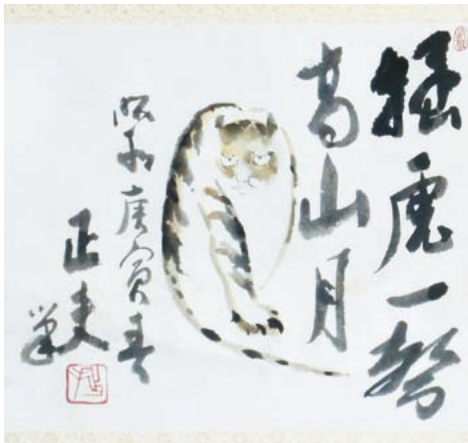 猛虎一聲
高山月
昭和庚寅春
正夫筆